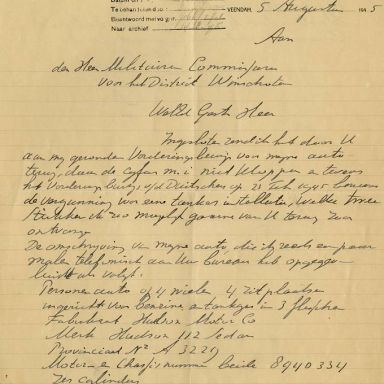 Te behandelen door :
Beantwoord met vg nr.
Naar archief
VEENDAM, 5 Augustus 1945
Aan
den Heer Militaire Commissaris
voor het District Winschoten
Weled Gestr Heer
Ingesloten zend ik het door U
aan mij gezonden Vorderingsbewijs van mijne auto
terug, daar de cijfers m.i. niet kloppen en tevens
het Vorderingsbewijs v/d Duitschers op 21 Feb 1945
de vergunning voor eene tankgas installatie, Welke twee
Stukken ik zoo mogelijk gaarne van U terug zou
ontvangen
De omschrijving van mijne auto die ik reeds een paar
malen telefonisch aan Uw bureau heb opgege-
luidt als volgt.
Persone auto op 4 wielen 4 zitplaatsen
ingericht voor Benzine en tankgas in 3 flesschen
Fabrikaat Hudson Motor Co
Merk Hudson 112 Sedan
Provinciaal No A 3229
Motor en Chassisnummer beide 8940334
Zes cylinders